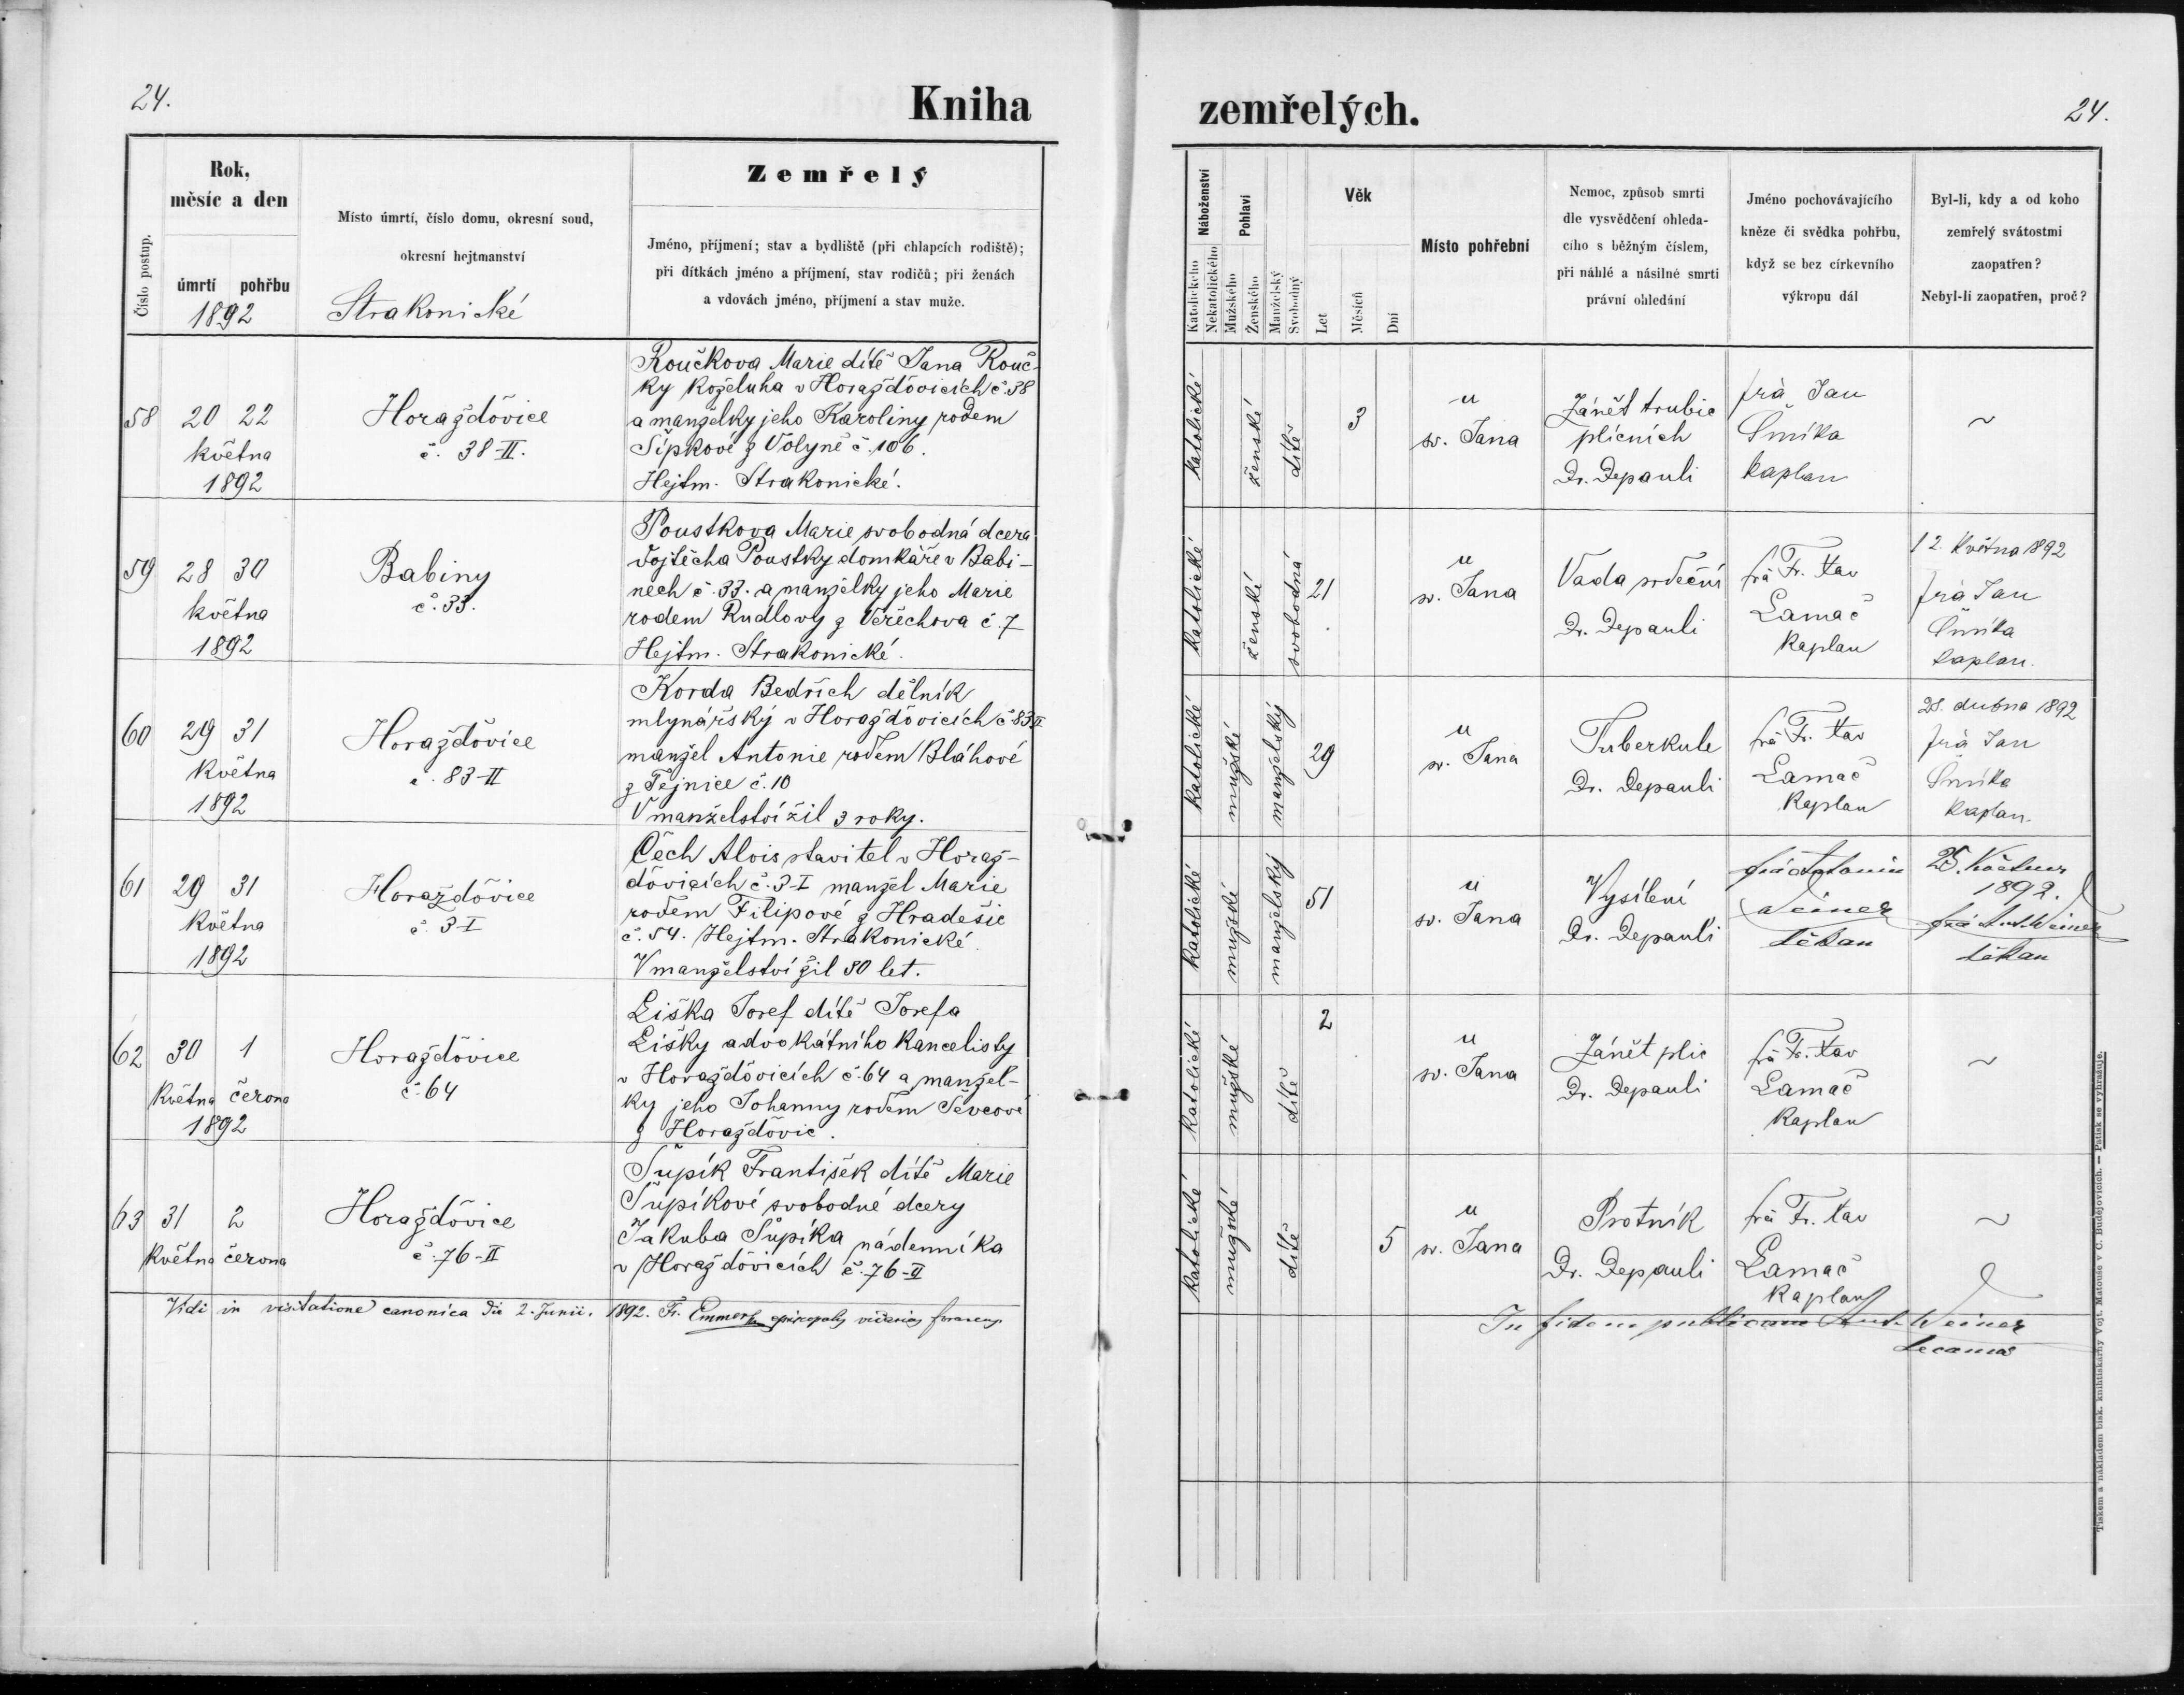 24.
Kniha
Rok,
měsíc a den
Číslo postup.
úmrtí pohřbu
1892
Místo úmrtí, číslo domu, okresní soud,
okresní hejtmanství
Strakonické
Zemřelý
Jméno, příjmení; stav a bydliště (při chlapcích rodiště);
při dítkách jméno a příjmení, stav rodičů; při ženách
a vdovách jméno, příjmení a stav muže.
58 20 22
května
1892
Horažďovice
č. 38-II.
Roučkova Marie dítě Jana Rouč-
ky koželuha v Horažďovicích č. 38
a manželky jeho Karoliny rodem
Šípkové z Volyně č. 106.
Hejtm. Strakonické.
59 28 30
května
1892
Babiny
č. 33.
Poustkova Marie svobodná dcera
Vojtěcha Poustky domkáře v Babi-
nech č. 33. a manželky jeho Marie
rodem Rudlovy z Věřechova č. 7
Hejtm. Strakonické.
60 29 31
května
1892
Horažďovice
č. 83-II
Korda Bedřich dělník
mlynářský v Horažďovicích č. 83 II
manžel Antonie rodem Bláhové
z Tějnice č. 10
V manželství žil 3 roky.
61 29 31
května
1892
Horažďovice
č. 3-I
Čech Alois stavitel v Horaž-
ďovicích č. 3-I manžel Marie
rodem Filipové z Hradešic
č. 54. Hejtm. Strakonické.
V manželství žil 30 let.
62 30 1
května června
1892
Horažďovice
č. 64
Liška Josef dítě Josefa
Lišky advokátního kancelisty
v Horažďovicích č. 64 a manžel-
ky jeho Johanny rodem Ševcové
z Horažďovic.
63 31 2
května června
Horažďovice
č. 76-II
Šupík František dítě Marie
Šupíkové svobodné dcery
Jakuba Šupíka nádenníka
v Horažďovicích č. 76-II
Vidi in visitatione canonica die 2. Junii. 1892. Fr. episcopalis vicarius
zemřelých.
24.
Náboženství
Katolického
Nekatolického
Pohlaví
Mužského
Ženského
Manželský
Svobodný
Věk
Let
Měsíců
Dní
Místo pohřební
Nemoc, způsob smrti
dle vysvědčení ohleda-
cího s běžným číslem,
při náhlé a násilné smrti
právní ohledání
Jméno pochovávajícího
kněze či svědka pohřbu,
když se bez církevního
výkropu dál
Byl-li, kdy a od koho
zemřelý svátostmi
zaopatřen?
Nebyl-li zaopatřen, proč?
katolické
ženské
dítě
3
u
sv. Jana
Zánět trubic
plícních
Dr. Depauli
frà Jan
Šmíka
kaplan
~
katolické
ženské
svobodná
21
u
sv. Jana
Vada srdeční
Dr. Depauli
frà Fr. Xav
Lamač
kaplan
12. května 1892
frà Jan
Šmíka
kaplan.
katolické
mužské
manželský
29
u
sv. Jana
Tuberkule
Dr. Depauli
frà Fr. Xav
Lamač
kaplan
28. dubna 1892
frà Jan
Šmíka
kaplan.
katolické
mužské
manželský
51
u
sv. Jana
Vysílení
Dr. Depauli
frà Antonín
Weiner
děkan
25. května
1892.
frà Ant. Weiner
děkan
katolické
mužské
dítě
2
u
sv. Jana
Zánět plic
Dr. Depauli
frà Fr. Xav
Lamač
kaplan
~
katolické
mužské
dítě
5
u
sv. Jana
Psotník
Dr. Depauli
frà Fr. Xav
Lamač
kaplan
~
In fidem publicam Ant. Weiner
decanus
Tiskem a nákladem bisk. knihtiskárny Vojt. Matouše v Č. Budějovicích. — Patisk se vyhražuje.